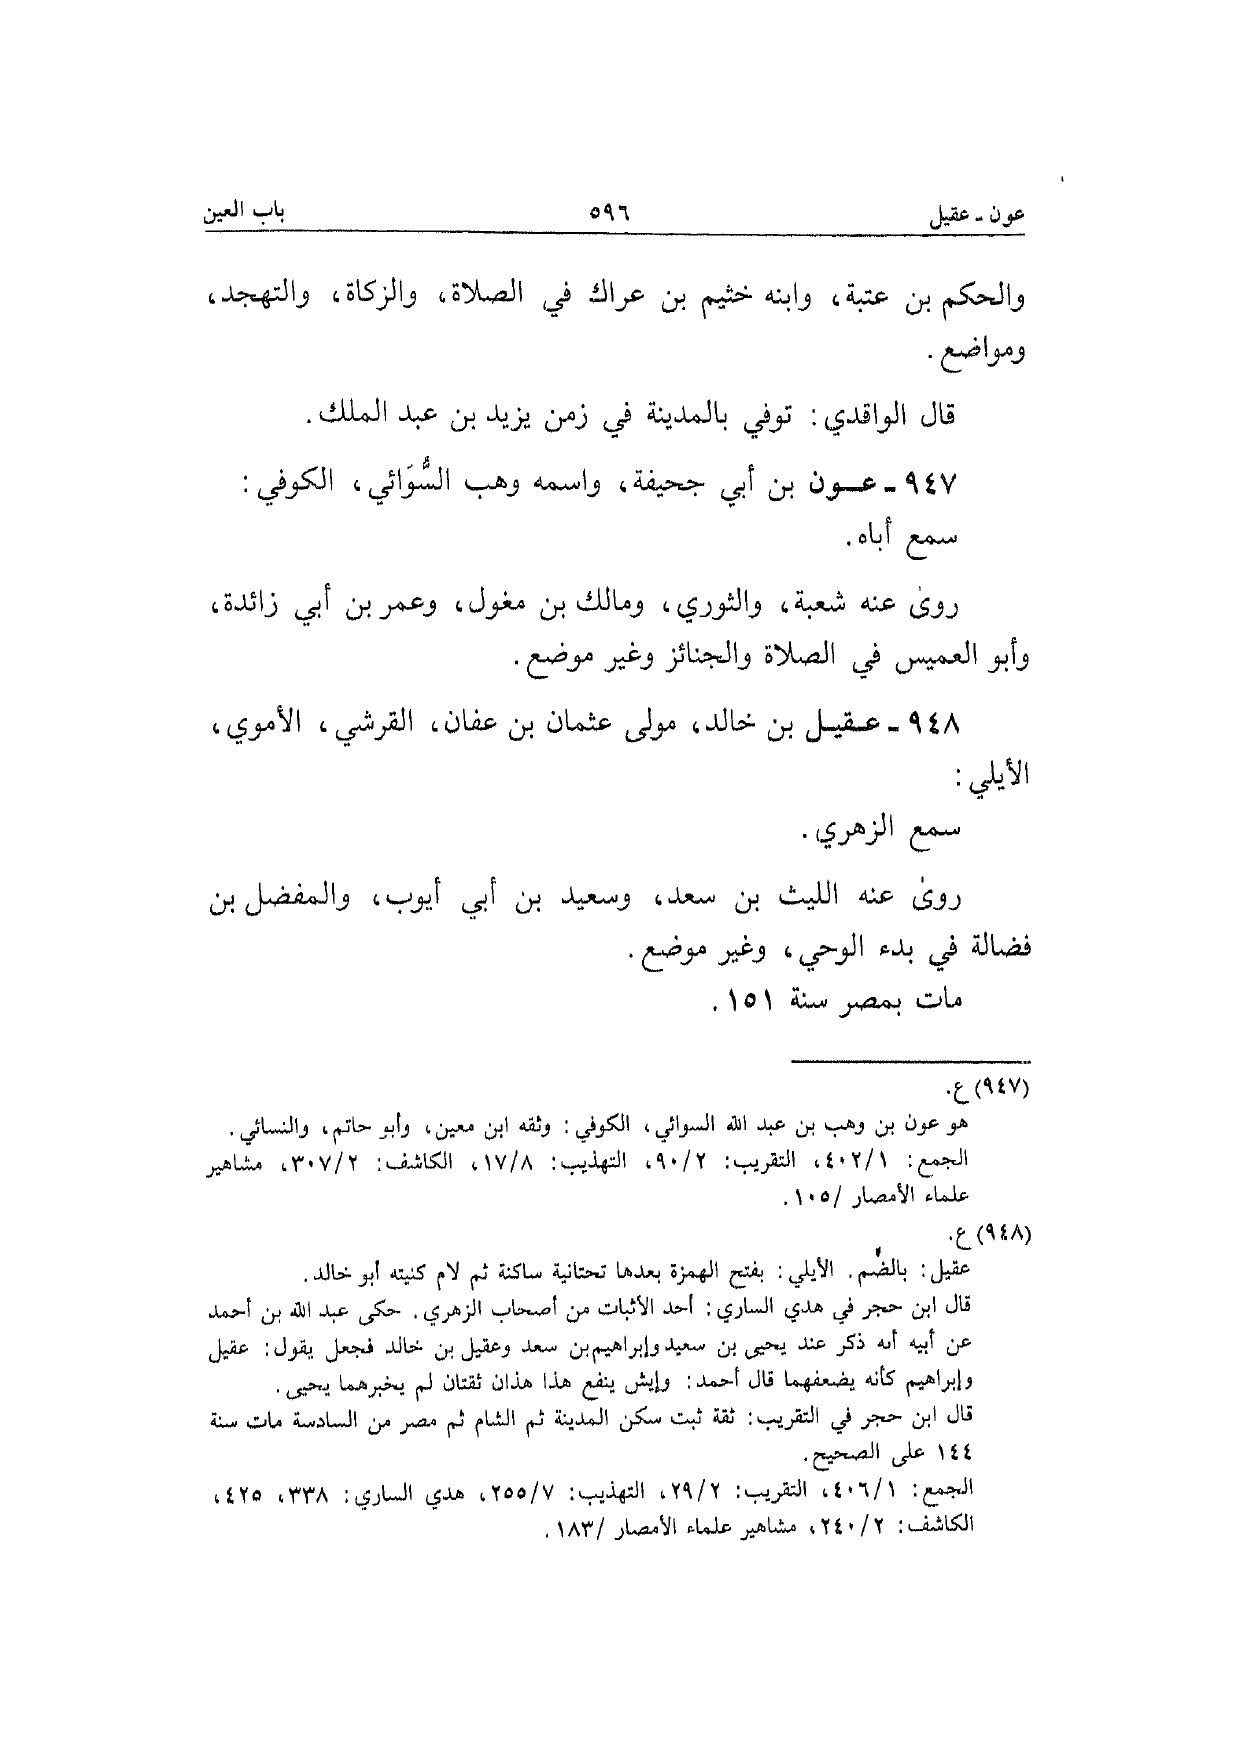 عون - عقيل ٥٩٦ باب العين
والحكم بن عتبة، وابنه خثيم بن عراك في الصلاة، والزكاة، والتهجد،
ومواضع.
قال الواقدي: توفي بالمدينة في زمن يزيد بن عبد الملك.
٩٤٧ - عون بن أبي جحيفة، واسمه وهب السُّوَائي، الكوفي:
سمع أباه.
روىٰ عنه شعبة، والثوري، ومالك بن مغول، وعمر بن أبي زائدة،
وأبو العميس في الصلاة والجنائز وغير موضع.
٩٤٨ - عقيل بن خالد، مولى عثمان بن عفان، القرشي، الأموي،
الأيلي:
سمع الزهري.
روىٰ عنه الليث بن سعد، وسعيد بن أبي أيوب، والمفضل بن
فضالة في بدء الوحي، وغير موضع.
مات بمصر سنة ١٥١.
(٩٤٧) ع.
هو عون بن وهب بن عبد الله السوائي، الكوفي: وثقه ابن معين، وأبو حاتم، والنسائي.
الجمع: ٤٠٢/١، التقريب: ٩٠/٢، التهذيب: ١٧/٨، الكاشف: ٣٠٧/٢، مشاهير
علماء الأمصار /١٠٥.
(٩٤٨) ع.
عقيل: بالضُّم. الأيلي: بفتح الهمزة بعدها تحتانية ساكنة ثم لام كنيته أبو خالد.
قال ابن حجر في هدي الساري: أحد الأثبات من أصحاب الزهري. حكى عبد الله بن أحمد
عن أبيه أنه ذكر عند يحيى بن سعيد وإبراهيم بن سعد وعقيل بن خالد فجعل يقول: عقيل
وإبراهيم كأنه يضعفهما قال أحمد: وإيش ينفع هذا هذان ثقتان لم يخبرهما يحيى.
قال ابن حجر في التقريب: ثقة ثبت سكن المدينة ثم الشام ثم مصر من السادسة مات سنة
١٤٤ على الصحيح.
الجمع: ٤٠٦/١، التقريب: ٢٩/٢، التهذيب: ٢٥٥/٧، هدي الساري: ٣٣٨، ٤٢٥،
الكاشف: ٢٤٠/٢، مشاهير علماء الأمصار /١٨٣.